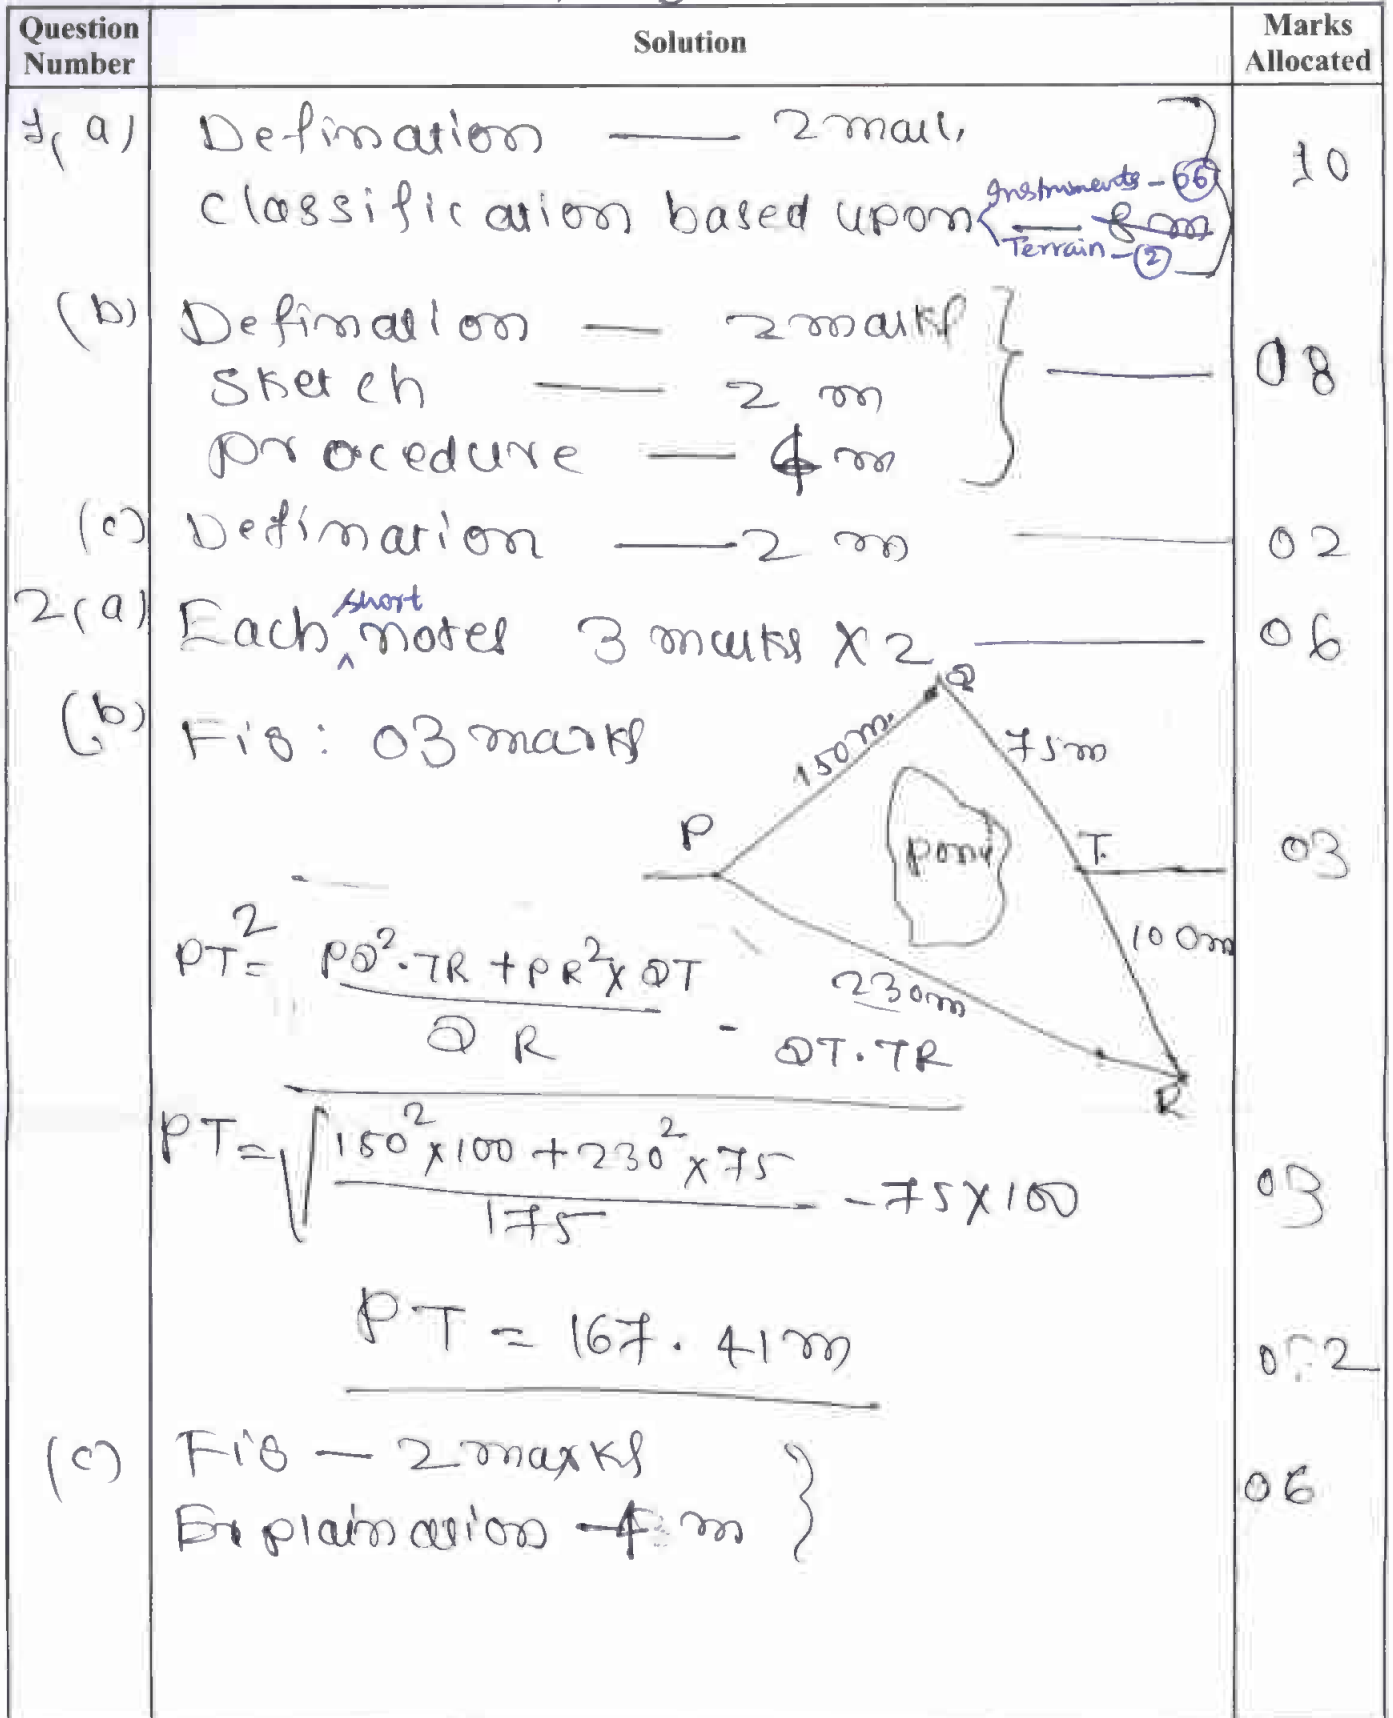 Question Number
Solution
Marks Allocated
1(a) Defination — 2 mark
Classification based upon Instruments - 06 Terrain - 2
10
(b) Defination — 2 marks
Sketch — 2 m
procedure — 4 m
08
(c) Defination — 2 m 02
2(a) Each short notes 3 marks X 2 06
(b) Fig: 03 marks
Q
150m
75m
P
pond
T.
03
100m
230m
R
PT² = PQ².TR + PR² X QT / QR - QT.TR
PT = √150² x 100 + 230² x 75 / 175 - 75 X 100
03
PT = 167.41 m
02
(c) Fig — 2 marks
Explaination - 4 m
06